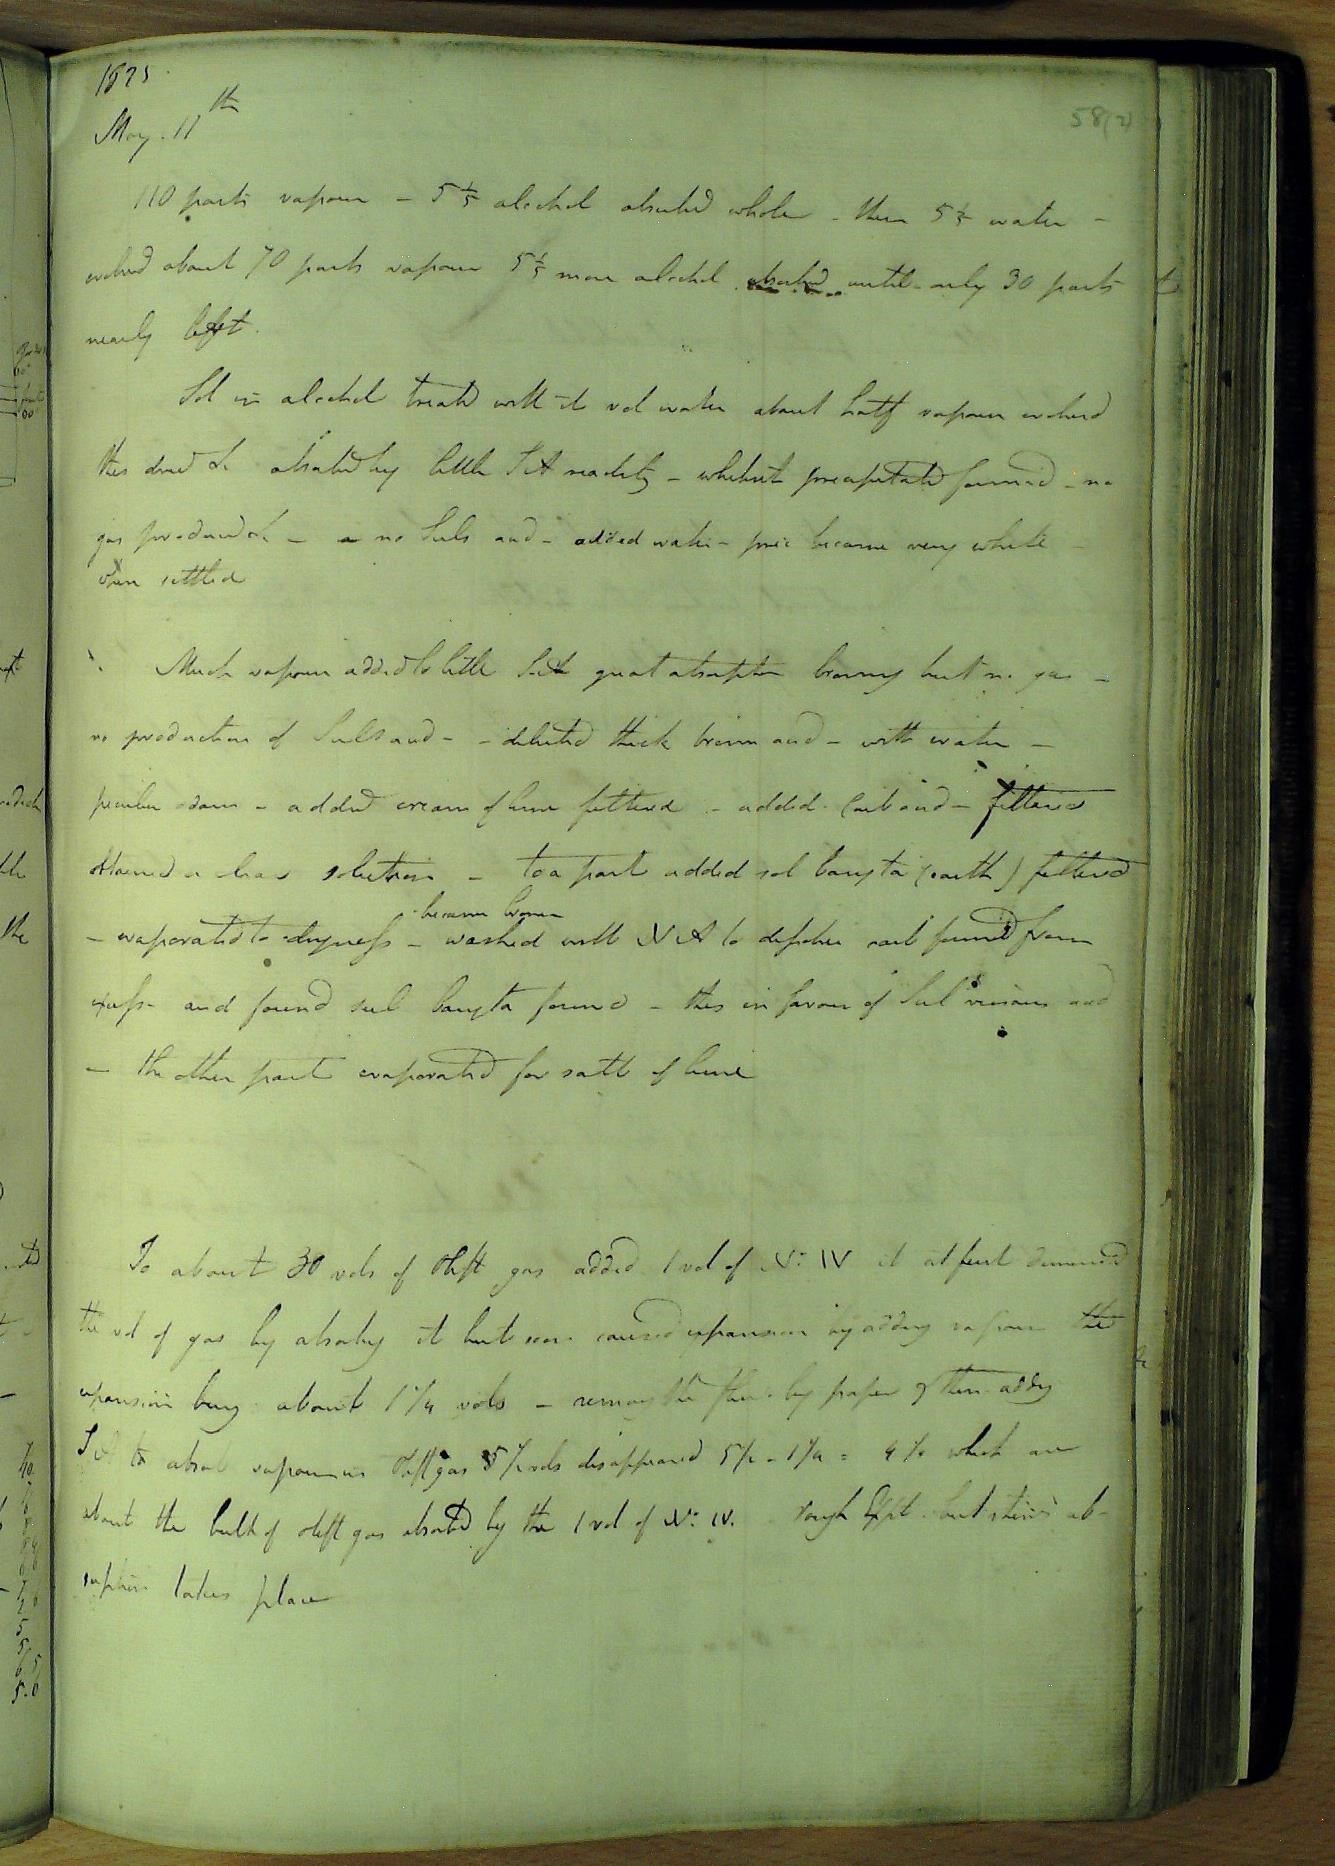 1825
May. 11th
58(2)
110 parts vapour - 5 1/5 alcohol absorbed whole - then 5 1/5 water -
evolved about 70 parts vapour 5 1/5 more alcohol absorbed until only 30 parts
nearly left.
Sol in alcohol treated with its vol water about half vapour evolved
this dried &c absorbed by little S A readily - whitish precipitate formed - no
gas produced &c - no Suls acid - added water - prec became very white -
when settled
Much vapour added to little S A great absorption browning but no gas -
no production of Suls acid - - diluted thick brown acid - with water -
peculiar odour - added cream of lime filtered - added Carb acid - filtered
obtained a clear solution - to a part added sol baryta (earth) filtered
became brown
- evaporated to dryness - washed with N A to dissolve carb formed from
excess - and found sul baryta formed - this in favour of Sul vinous acid
- the other part evaporated for salt of lime
To about 30 vols of Oleft gas added 1 vol of No: IV it at first diminished
the vol of gas by absorbing it but soon caused expansion by adding vapour the
expansion being about 1 1/4 vols - removing the fluid by paper & then adding
S A to absorb vapour in Oleft gas 5 1/2 vols disappeared 5 1/2 - 1 1/4 = 4 1/4 which are
about the bulk of oleft gas absorbed by the 1 vol of No: IV. rough Expt. but shews ab-
sorption takes place